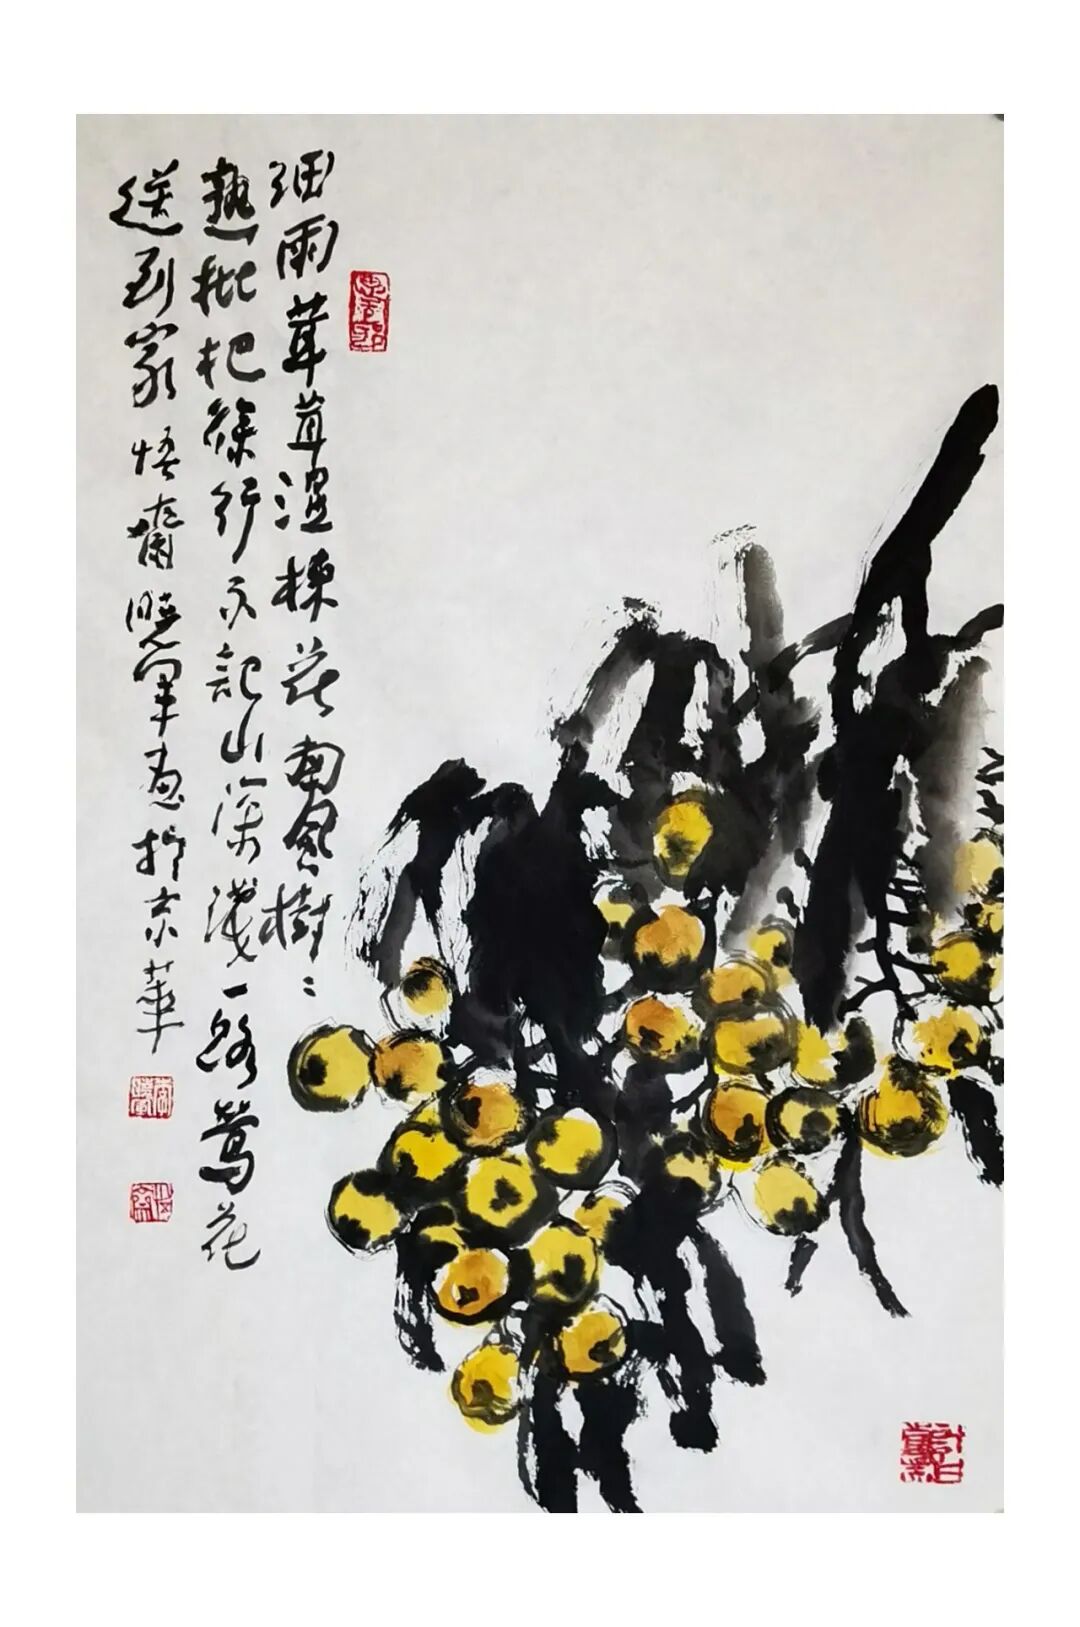 细雨茸茸湿楝花南风树〻
熟枇杷徐行不记山深浅一路莺花
送到家 悟斋晓军画于京华